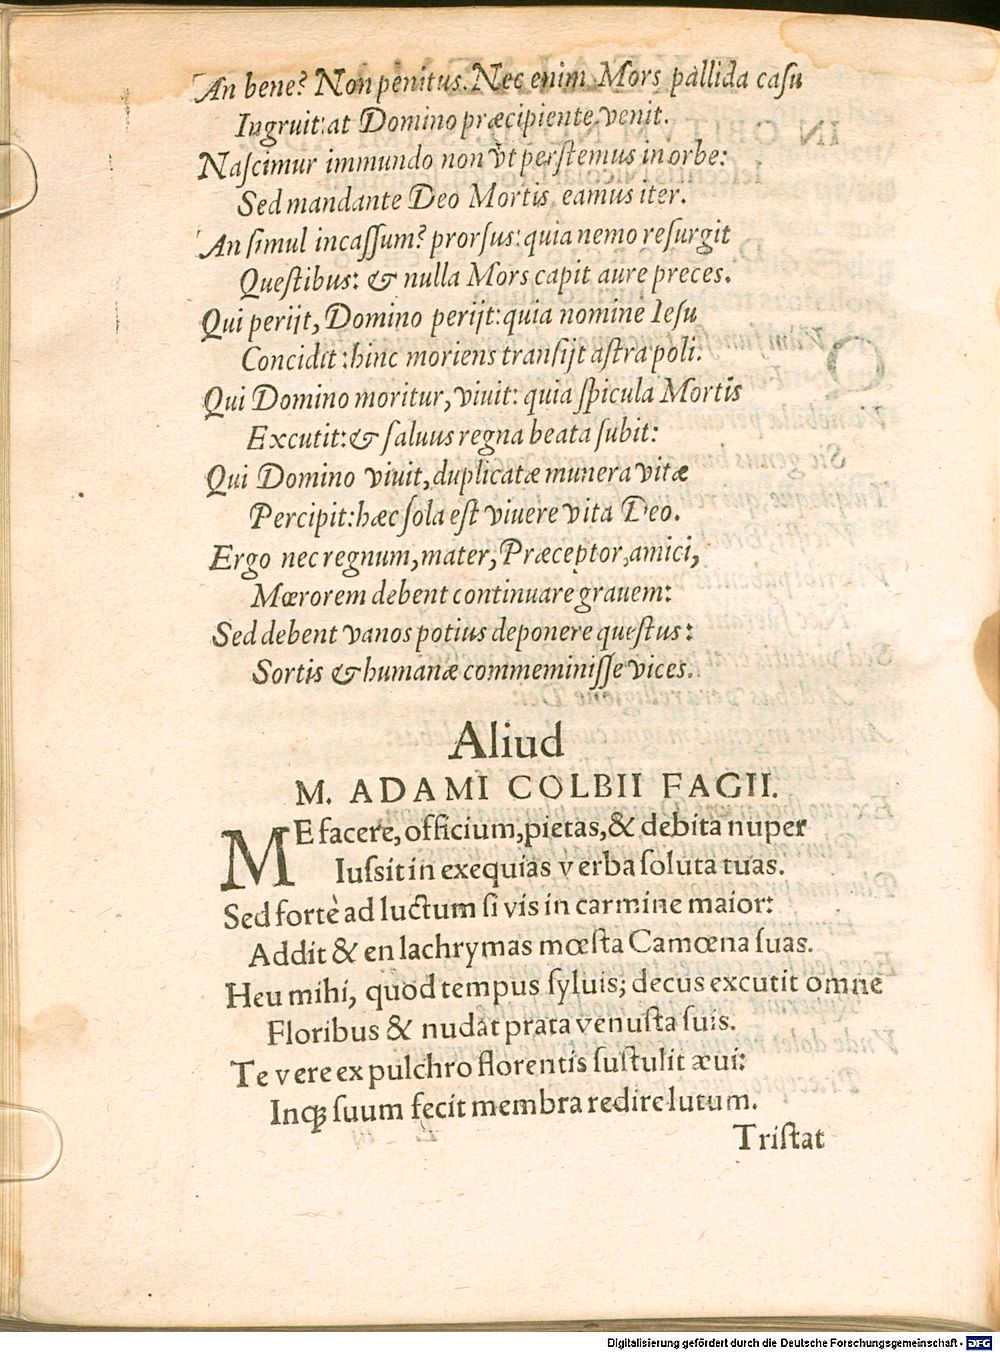 An bene? Non penitus. Nec enim Mors pallida caſu
Ingruit: at Domino præcipiente venit.
Naſcimur immundo non vt perſtemus in orbe:
Sed mandante Deo Mortis eamus iter.
An ſimul incaſſum? prorſus: quia nemo reſurgit
Queſtibus: & nulla Mors capit aure preces.
Qui perijt, Domino perijt: quia nomine Ieſu
Concidit: hinc moriens tranſijt aſtra poli.
Qui Domino moritur, viuit: quia ſpicula Mortis
Excutit: & ſaluus regna beata ſubit:
Qui Domino viuit, duplicatæ munera vitæ
Percipit: hæc ſola eſt viuere vita Deo.
Ergo nec regnum, mater, Præceptor, amici,
Mœrorem debent continuare grauem:
Sed debent vanos potius deponere queſtus:
Sortis & humanæ commeminiſſe vices.
Aliud
M. ADAMI COLBII FAGII.
ME facere, officium, pietas, & debita nuper
Iuſsit in exequias verba ſoluta tuas.
Sed fortè ad luctum ſi vis in carmine maior:
Addit & en lachrymas mœſta Camœna ſuas.
Heu mihi, quod tempus ſyluis; decus excutit omne
Floribus & nudat prata venuſta ſuis.
Te vere ex pulchro florentis ſuſtulit æui:
Inq́; ſuum fecit membra redire lutum.
Triſtat
Digitalisierung gefördert durch die Deutsche Forschungsgemeinschaft - DFG